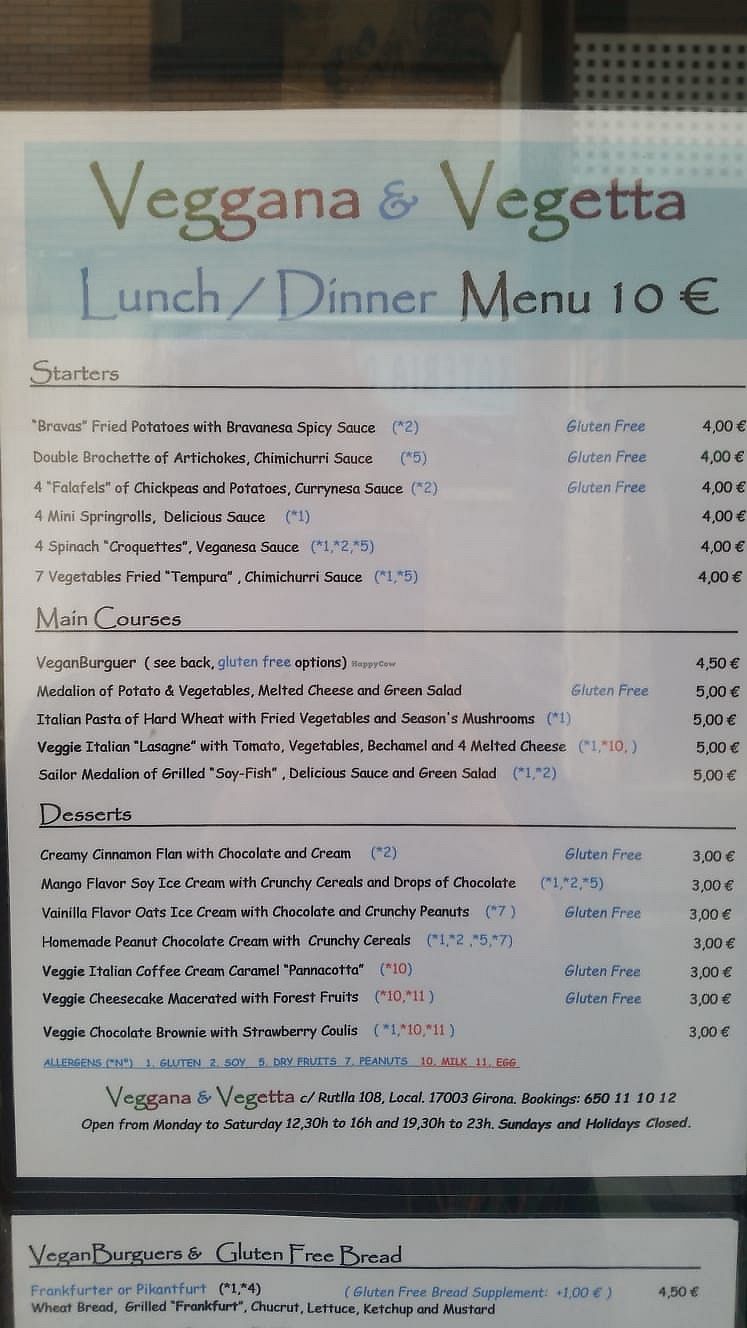 Veggana & Vegetta
Lunch / Dinner Menu 10 €
Starters
"Bravas" Fried Potatoes with Bravanesa Spicy Sauce (*2) Gluten Free 4,00 €
Double Brochette of Artichokes, Chimichurri Sauce (*5) Gluten Free 4,00 €
4 "Falafels" of Chickpeas and Potatoes, Currynesa Sauce (*2) Gluten Free 4,00 €
4 Mini Springrolls, Delicious Sauce (*1) 4,00 €
4 Spinach "Croquettes", Veganesa Sauce (*1,*2,*5) 4,00 €
7 Vegetables Fried "Tempura" , Chimichurri Sauce (*1,*5) 4,00 €
Main Courses
VeganBurguer ( see back, gluten free options) HappyCow 4,50 €
Medalion of Potato & Vegetables, Melted Cheese and Green Salad Gluten Free 5,00 €
Italian Pasta of Hard Wheat with Fried Vegetables and Season's Mushrooms (*1) 5,00 €
Veggie Italian "Lasagne" with Tomato, Vegetables, Bechamel and 4 Melted Cheese (*1,*10, ) 5,00 €
Sailor Medalion of Grilled "Soy-Fish" , Delicious Sauce and Green Salad (*1,*2) 5,00 €
Desserts
Creamy Cinnamon Flan with Chocolate and Cream (*2) Gluten Free 3,00 €
Mango Flavor Soy Ice Cream with Crunchy Cereals and Drops of Chocolate (*1,*2,*5) 3,00 €
Vainilla Flavor Oats Ice Cream with Chocolate and Crunchy Peanuts (*7 ) Gluten Free 3,00 €
Homemade Peanut Chocolate Cream with Crunchy Cereals (*1,*2 ,*5,*7) 3,00 €
Veggie Italian Coffee Cream Caramel "Pannacotta" (*10) Gluten Free 3,00 €
Veggie Cheesecake Macerated with Forest Fruits (*10,*11 ) Gluten Free 3,00 €
Veggie Chocolate Brownie with Strawberry Coulis ( *1,*10,*11 ) 3,00 €
ALLERGENS (*Nº) 1. GLUTEN 2. SOY 5. DRY FRUITS 7. PEANUTS 10. MILK 11. EGG
Veggana & Vegetta c/ Rutlla 108, Local. 17003 Girona. Bookings: 650 11 10 12
Open from Monday to Saturday 12,30h to 16h and 19,30h to 23h. Sundays and Holidays Closed.
VeganBurguers & Gluten Free Bread
Frankfurter or Pikantfurt (*1,*4) ( Gluten Free Bread Supplement: +1,00 € ) 4,50 €
Wheat Bread, Grilled "Frankfurt", Chucrut, Lettuce, Ketchup and Mustard